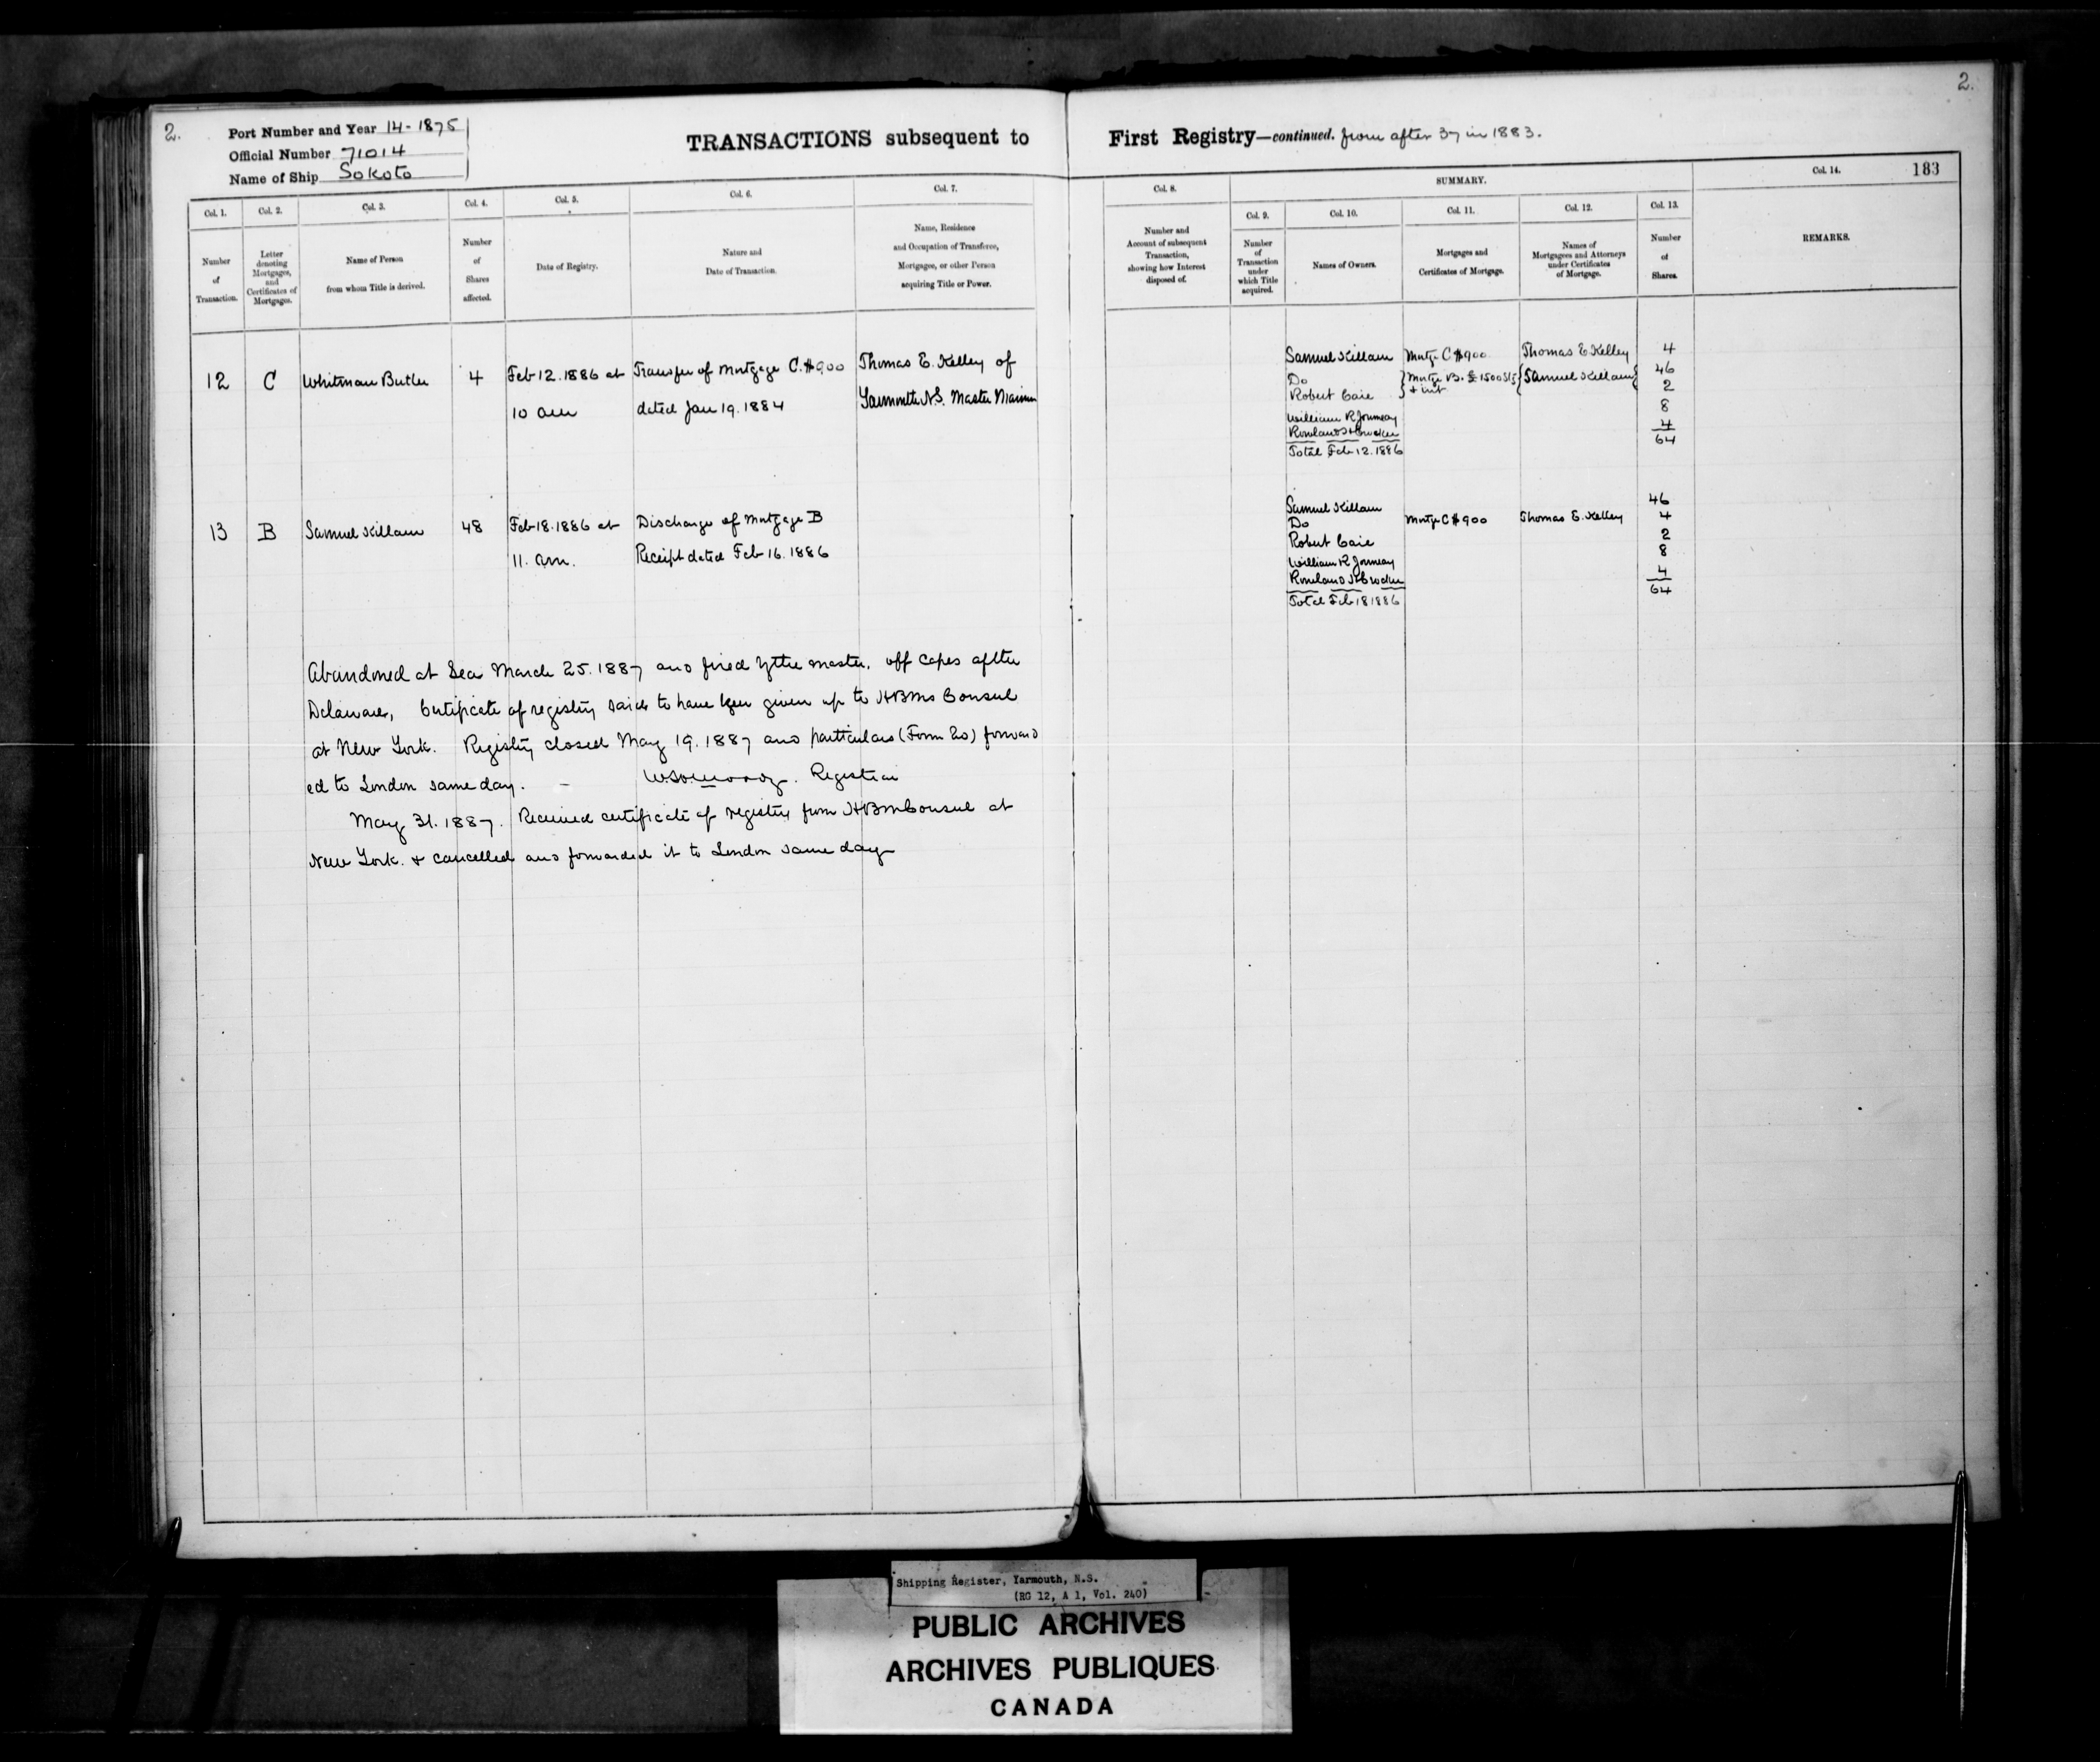 2.
Port Number and Year 14-1875
Official Number 71014
Name of Ship Sokoto
TRANSACTIONS subsequent to
Col. 1.
Col. 2.
Col. 3.
Col. 4.
Col. 5.
Col. 6.
Col. 7.
Number of Transaction.
Letter denoting Mortgages, and Certificates of Mortgages.
Name of Person from whom Title is derived.
Number of Shares affected.
Date of Registry.
Nature and Date of Transaction.
Name, Residence and Occupation of Transferee, Mortgagee, or other Person acquiring Title or Power.
12 C Whitman Butler 4 Feb 12. 1886 at Transfer of Mortgage C. $900 Thomas E. Kelley of
10 am dated Jan 19. 1884 Yarmouth N.S. Master Mariner
13 B Samuel Killam 48 Feb 18. 1886 at Discharge of Mortgage B
11. am. Receipt dated Feb 16. 1886
Abandoned at Sea March 25. 1887 and fired by the master, off capes of the
Delaware, Certificate of registry said to have been given up to HBMs Consul
at New York. Registry closed May 19. 1887 and particulars (Form 20) forward
ed to London same day. – Moody. Registrar
May 31. 1887. Received certificate of registry from HBM Consul at
New York. & cancelled and forwarded it to London same day
2.
First Registry—continued. from after 37 in 1883.
183
Col. 8.
SUMMARY.
Col. 14.
Col. 9.
Col. 10.
Col. 11.
Col. 12.
Col. 13.
Number and Account of subsequent Transaction, showing how Interest disposed of.
Number of Transaction under which Title acquired.
Names of Owners.
Mortgages and Certificates of Mortgage.
Names of Mortgagees and Attorneys under Certificates of Mortgage.
Number of Shares.
REMARKS.
Samuel Killam Mortge C $900 Thomas E Kelley 4
Do } Mortge B. £1500 Stg { Samuel Killam } 46
Robert Caie } + int 2
William R Journeay 8
Rowland H Crocker 4
Total Feb 12. 1886 64
Samuel Killam 46
Do Mortge C $900 Thomas E. Kelley 4
Robert Caie 2
William R Journeay 8
Rowland H Crocker 4
Total Feb 18 1886 64
Shipping Register, Yarmouth, N.S.
(RG 12, A 1, Vol. 240)
PUBLIC ARCHIVES
ARCHIVES PUBLIQUES
CANADA